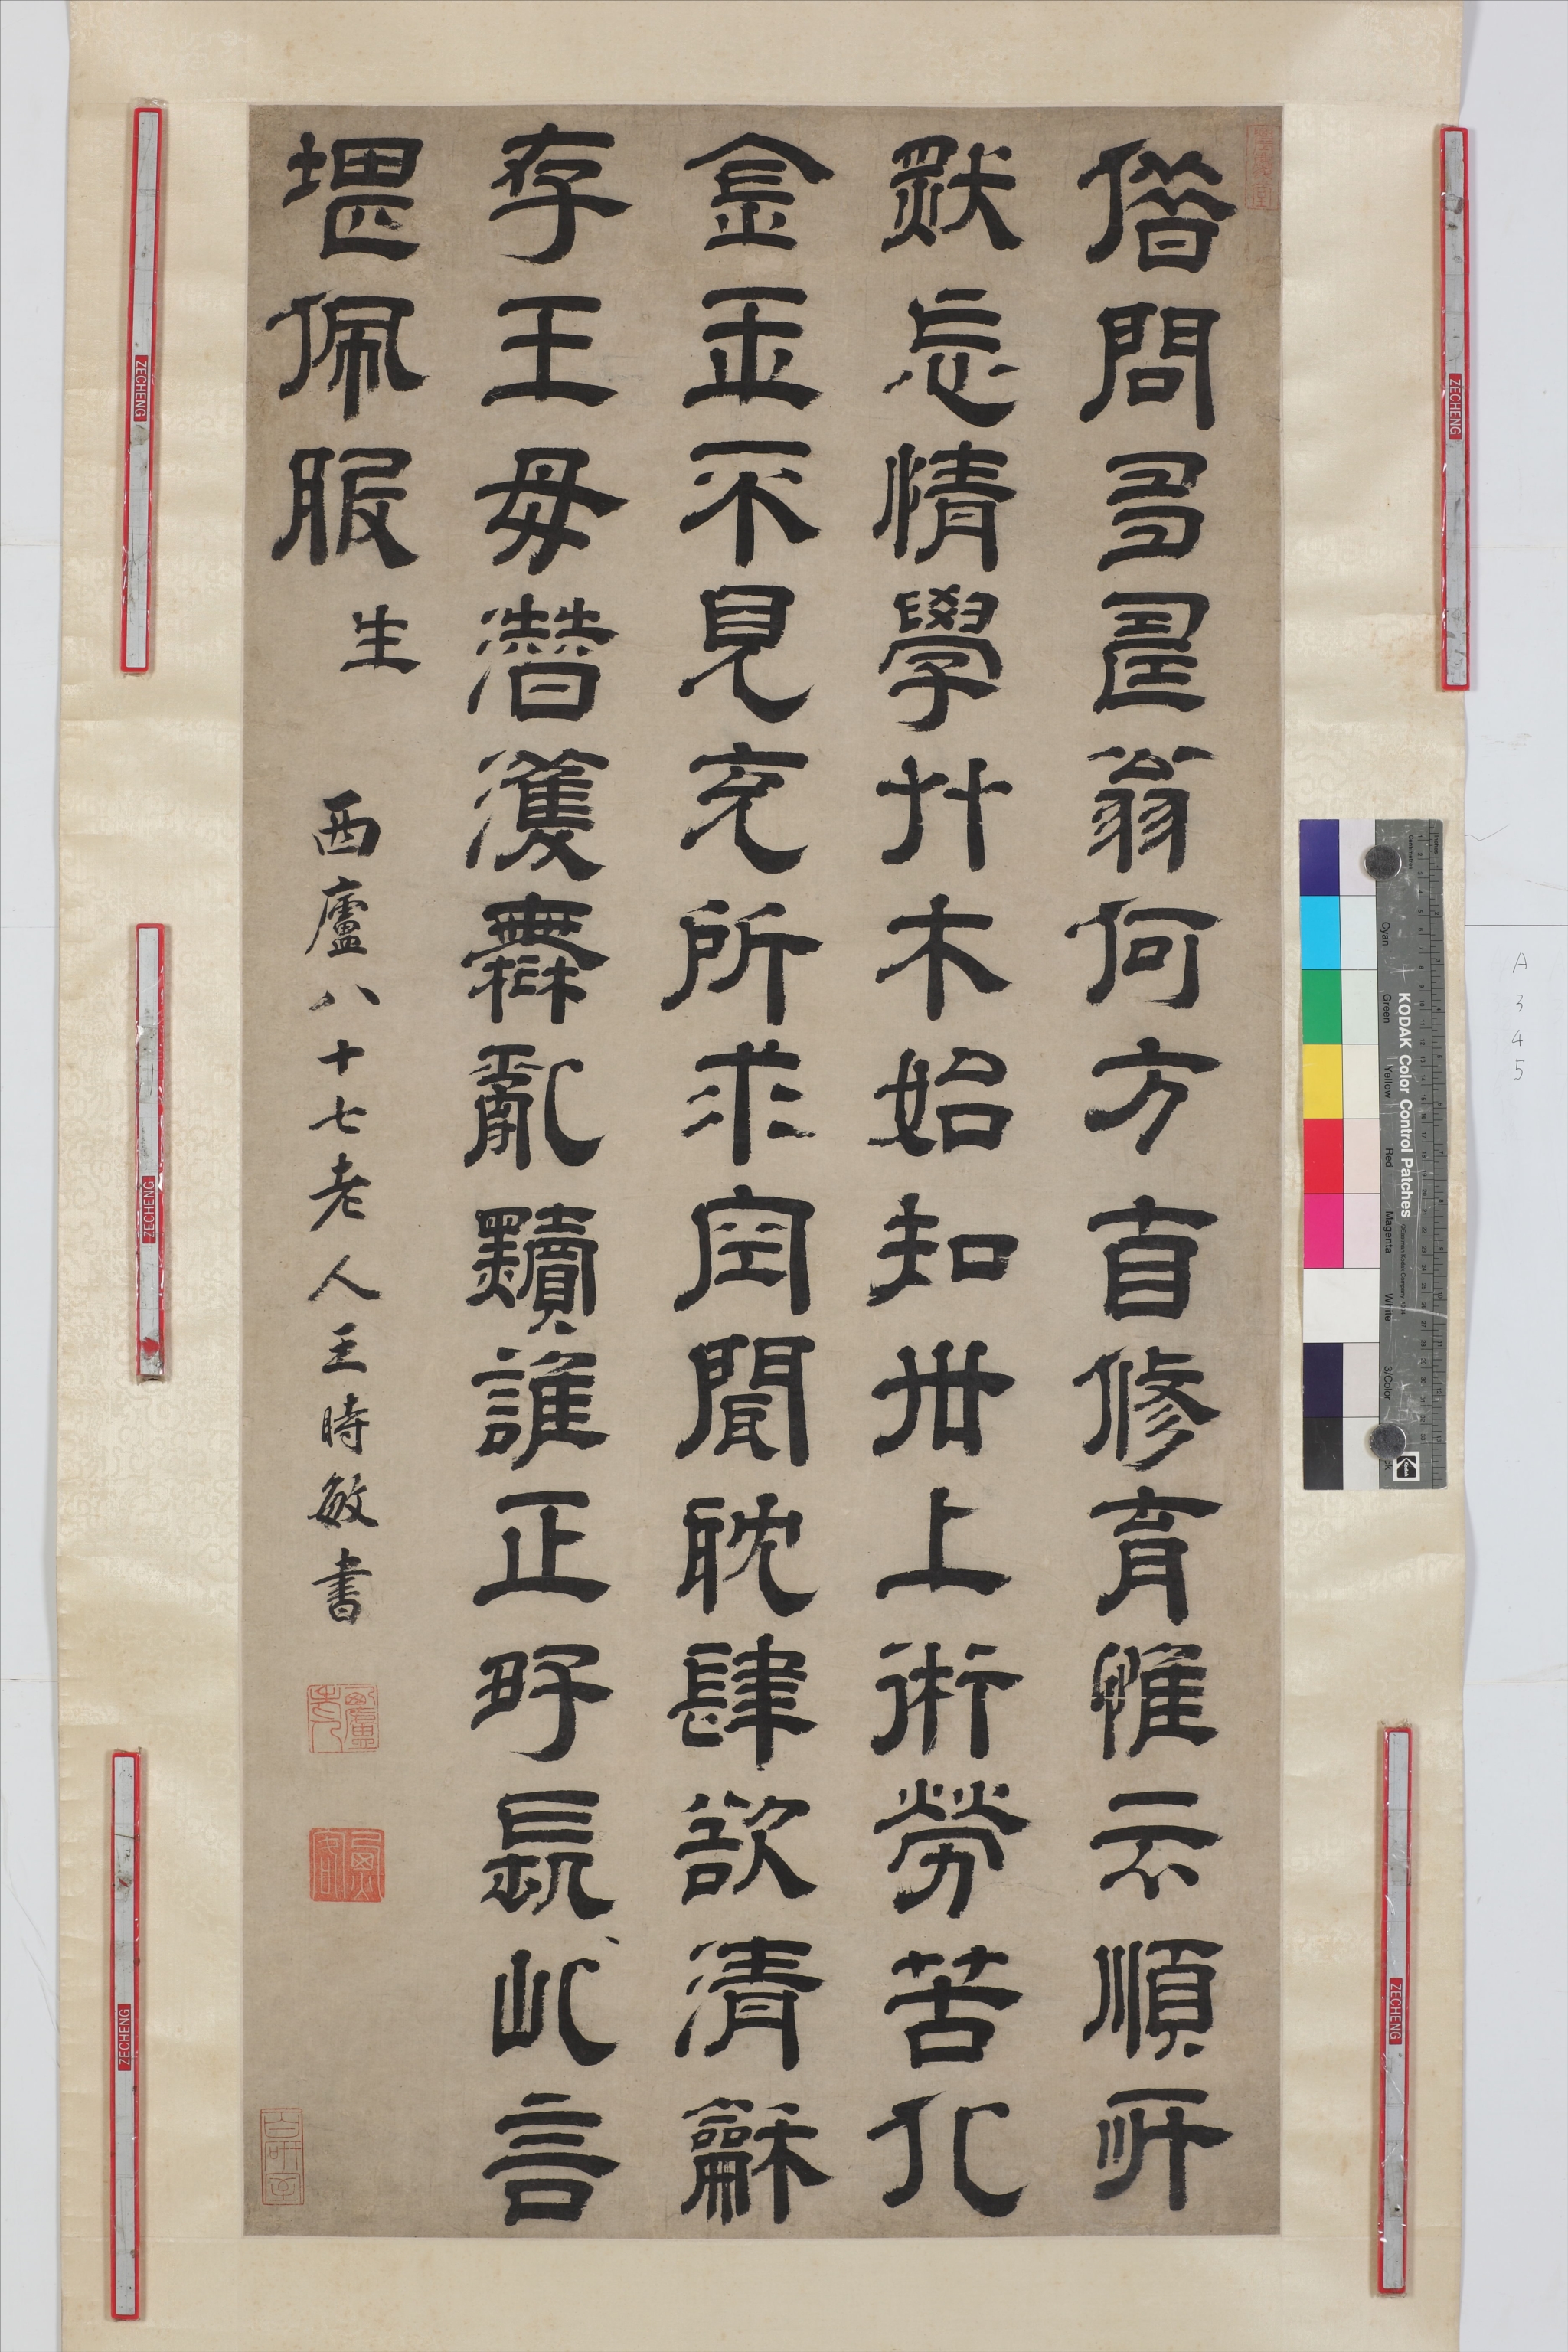 借問多壽翁何方自修育惟云順所
然忘情學艸木始知世上術勞苦化
金玉不見充所求空聞耽肆欲清龢
存王母潛濩無亂黷誰正好長此言
堪佩服 生
西廬八十七老人王時敏書
西廬老人
ZECHENG
ZECHENG
ZECHENG
ZECHENG
ZECHENG
KODAK Color Control Patches
Cyan Green Yellow Red Magenta White 3/Color
A345